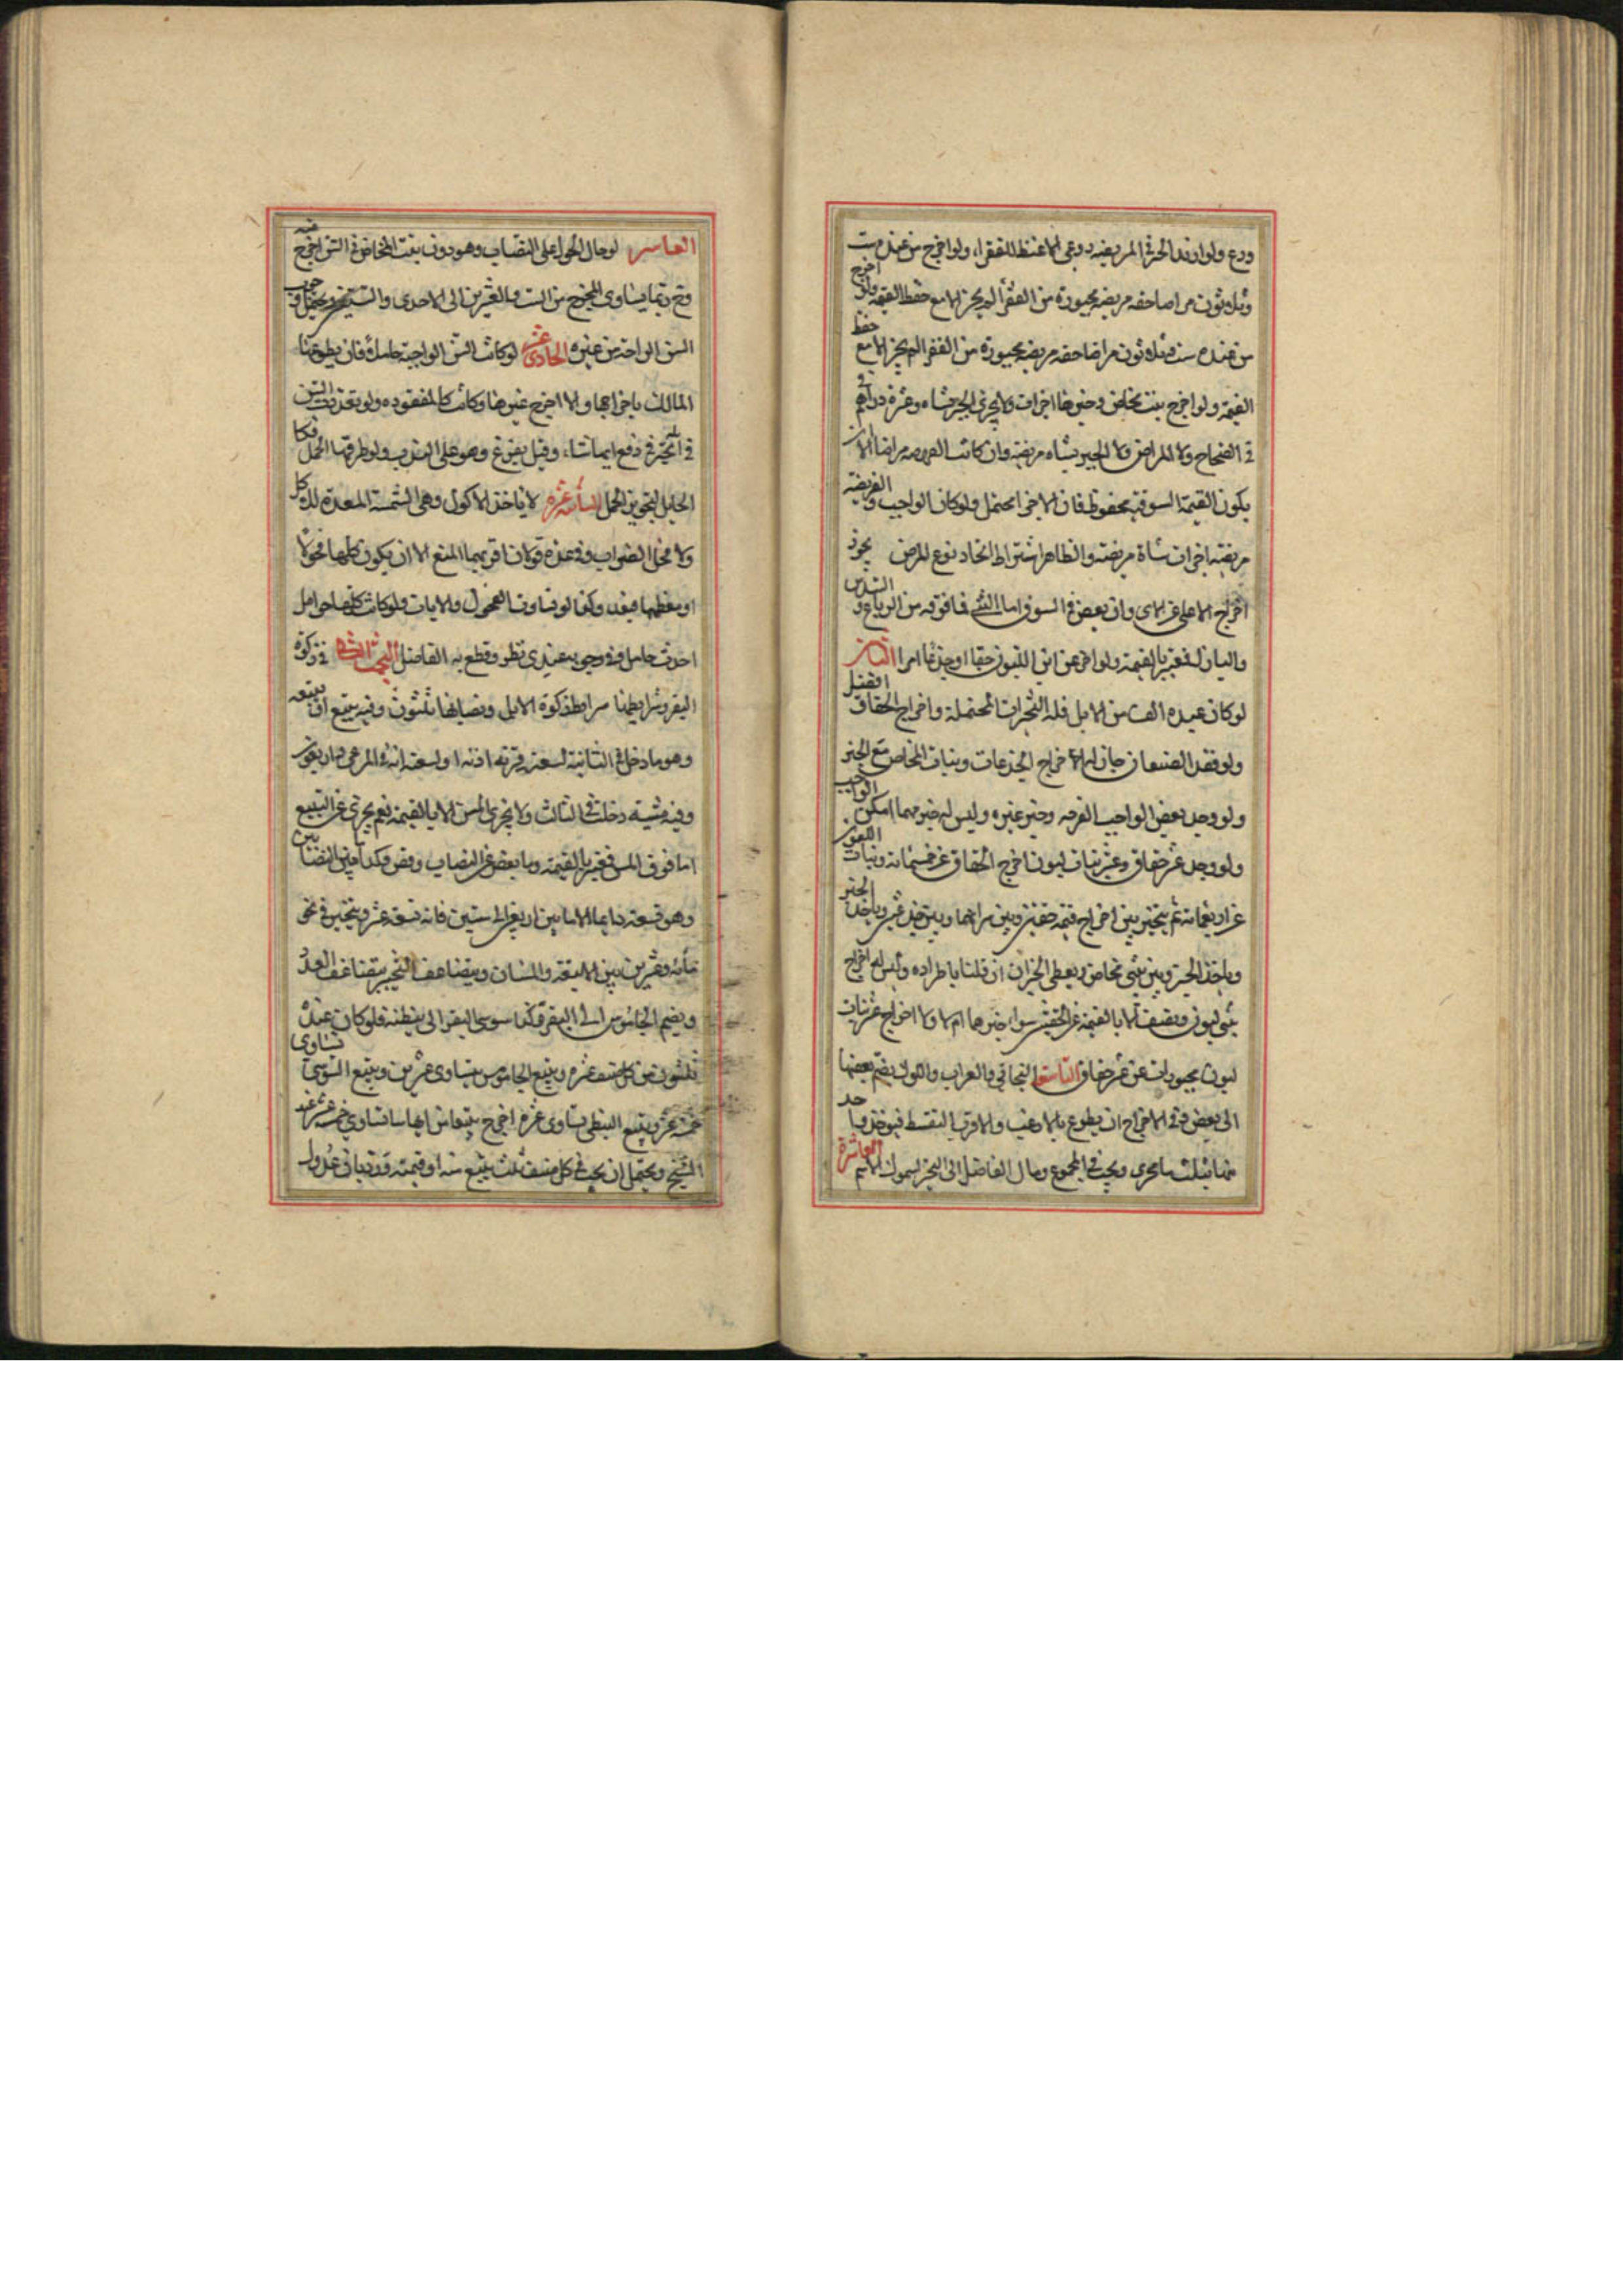 ودع ولو اراد الحرث المريضه روعى الاغبط للفقراء ولو اخرج من عنده ست
وثلاثون مراضا حقه مريضه مجبورة من الفقراء لم يجز الا مع حفظ القيمة ولو اخرج
من عنده ست وثلاثون مراضا حقه مريضه مجبورة من الفقراء لم يجز الا مع حفظ
القيمة ولو اخرج بنت مخاض وجبرها اجزات ولا يجزى الجبر بشاه وعشرة دراهم
في الصحاح ولا المراض ولا الجبر بشاه مريضة وان كانت مراضا الا ان
يكون القيمة السوقية محفوظة فان الاجزا محتمل ولو كان الواجب والفريضه
مريضه اجزات شاة مريضة والظاهر اشتراط اتحاد نوع المرض يجوز
اخراج الاعلى عن الادنى وان بعض في السوق اما الثني فما فوقه من الرباع والسدس
والبازل فيعتبر بالقيمة ولو اخرج عن ابن اللبون حقا او جذعا اجزا الثامن
لو كان عنده الف من الابل فله التخيرات المحتملة واخراج الحقاق افضل
ولو فقد الصنفان جاز له الاخراج الجذعات وبنات المخاض مع الجبر
ولو وجد بعض الواجب اخرجه وجبر غيره وليس له جبرهما امكن الواجب
ولو وجد عشر حقاق وعشر بنات لبون اخرج الحقاق عن خمسمائة وبنات اللبون
عن اربعمائة ثم يتخير بين اخراج قيمة حقتين وبين شرائهما وبين جذعتين وياخذ الجبر
وياخذ الجبر وبين بنتي مخاض ويعطى الجبران ان قلنا باطراده وليس له اخراج
بنتي لبون ونصف الا بالقيمة عن الحقتين سواء جبرها ام لا ولا اخراج عشر بنات
لبون مجبورات عن عشر حقاق التاسع البخاتي والعراب واللوك يضم بعضها
الى بعض وفي الاخراج ان يطوع بالارغب والا وجب التقسط فيوخذ
منها بثلث ويجب في المجموع ومال الفاضل الى التخير لشمول الاسم العاشرة
العاشر لو حال الحول على النصاب وهو دون بنت المخاض في السن اخرج منه
وح ربما يساوى المخرج من الست والعشرين الى الاحدى والستين ويحتمل وجوب
السن الواجبة من غيره الحادى عشر لو كانت السن الواجبة حاملا فان تطوع
المالك باخراجها والا اخرج غيرها وكانت كالمفقوده ولو تعددت السن
في تخير في دفع ايها شاء وقيل يقرع وهو على الندب ولو طرقها الفحل فكا
الحامل لتجويز الحمل الثانية عشرة لا ياخذ الاكول وهي السمينة المعدة للاكل
ولا فحل الضراب وفي عده قولان اقربهما المنع الا ان يكون كلها فحولا
او معظمها فيعد وكذا لو تساوت الفحول والاناث ولو كانت كلها حوامل
اخرج حامل وفي وجوبه عندى نظر وقطع به الفاضل البحث الثالث في زكوة
البقر وشرايطها شرايط زكوة الابل ونصابها ثلثون وفيه تبيع او تبيعه
وهو ما دخل في الثانية لتبعه قرنه اذنه او لتبعه امه في المرعى ثم اربعون
وفيه مسنة دخلت في الثالث ولا يجزى المسن الا بالقيمة نعم يجزى عن التبيع
اما فوق المسن فيعتبر بالقيمة وما بعض عن النصاب وقص وكذا ما بين النصابين
وهو تسعة دايما الا ما بين اربعين الى ستين فانه تسعة عشر ويتخير في نحو
مائة وعشرين بين الاتبعة والمسنات ويتضاعف التخير بتضاعف العدد
ويضم الجاموس الى البقر وكذا سوسى البقر الى نبطيه فلو كان عنده
ثلثون من كل صنف عشره وتبيع الجاموس يساوى عشرين وتبيع السوسى يساوى
خمسة عشر وتبيع النبطى يساوى عشرة اخرج تبيعا من ايها شاء يساوى خمسة عشر عند
الشيخ ويحتمل ان يجب في كل صنف ثلث تبيع منه او قيمته